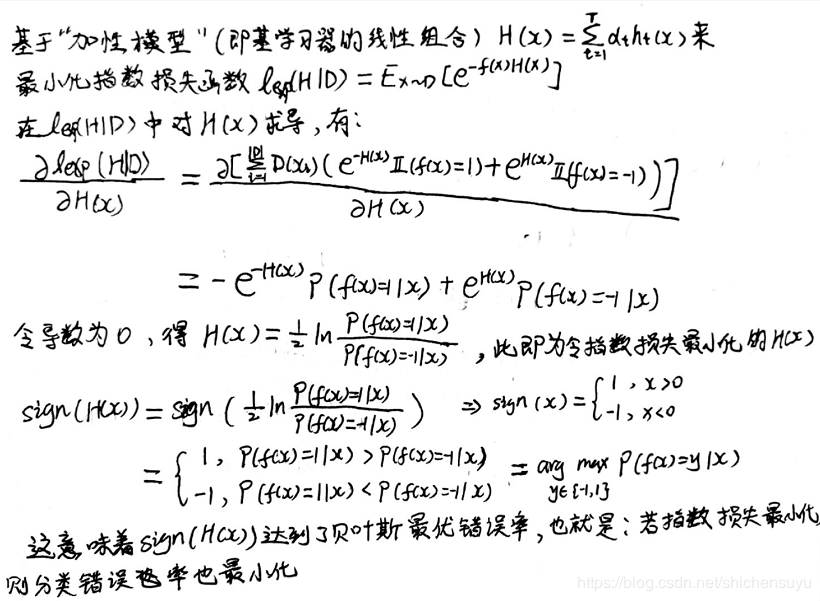 基于"加性模型"(即基学习器的线性组合) H(x) = ∑_{t=1}^{T} α_t h_t(x) 来
最小化指数损失函数 ℓexp(H|D) = E_{x~D}[e^{-f(x)H(x)}]
在 ℓexp(H|D) 中对 H(x) 求导，有：
∂ℓexp(H|D) / ∂H(x) = ∂[∑_{i=1}^{|D|} D(x_i)(e^{-H(x)} 𝕀(f(x)=1) + e^{H(x)} 𝕀(f(x)=-1))] / ∂H(x)
= -e^{-H(x)} P(f(x)=1|x) + e^{H(x)} P(f(x)=-1|x)
令导数为0，得 H(x) = 1/2 ln P(f(x)=1|x) / P(f(x)=-1|x)，此即为令指数损失最小化的H(x)
sign(H(x)) = sign( 1/2 ln P(f(x)=1|x) / P(f(x)=-1|x) ) ⇒ sign(x) = { 1, x>0 ; -1, x<0
= { 1, P(f(x)=1|x) > P(f(x)=-1|x) ; -1, P(f(x)=1|x) < P(f(x)=-1|x) = arg max_{y∈{-1,1}} P(f(x)=y|x)
这意味着sign(H(x))达到了贝叶斯最优错误率，也就是：若指数损失最小化，
则分类错误率也最小化
https://blog.csdn.net/shichensuyu